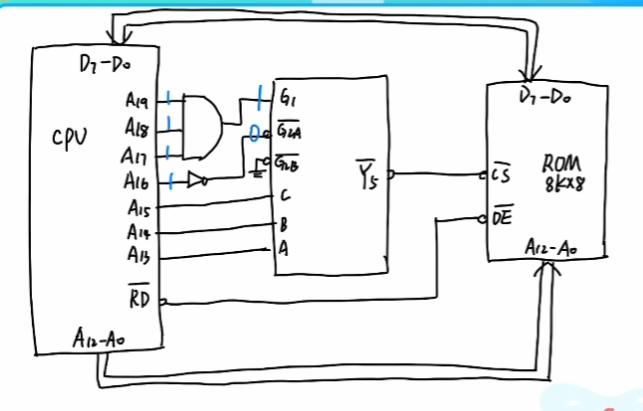 D7-D0
CPU
A19
A18
A17
A16
A15
A14
A13
RD
A12-A0
1
1
1
1
1
0
G1
G2A
G2B
C
B
A
Y5
D7-D0
CS
ROM
8K×8
OE
A12-A0